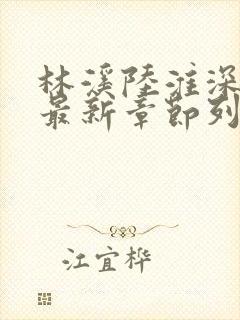 林溪陸淮深
最新章節列
江宜桦